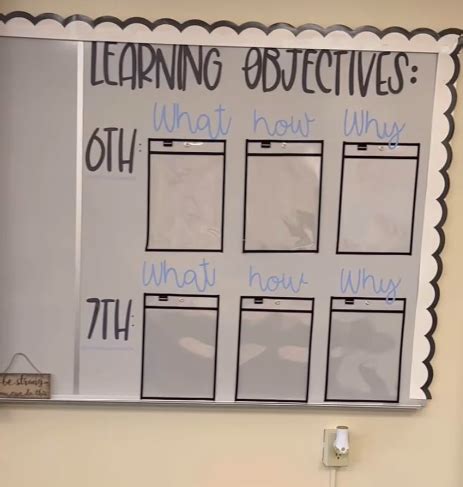 LEARNING OBJECTIVES:
What how Why
6TH:
What how Why
7TH:
be strong